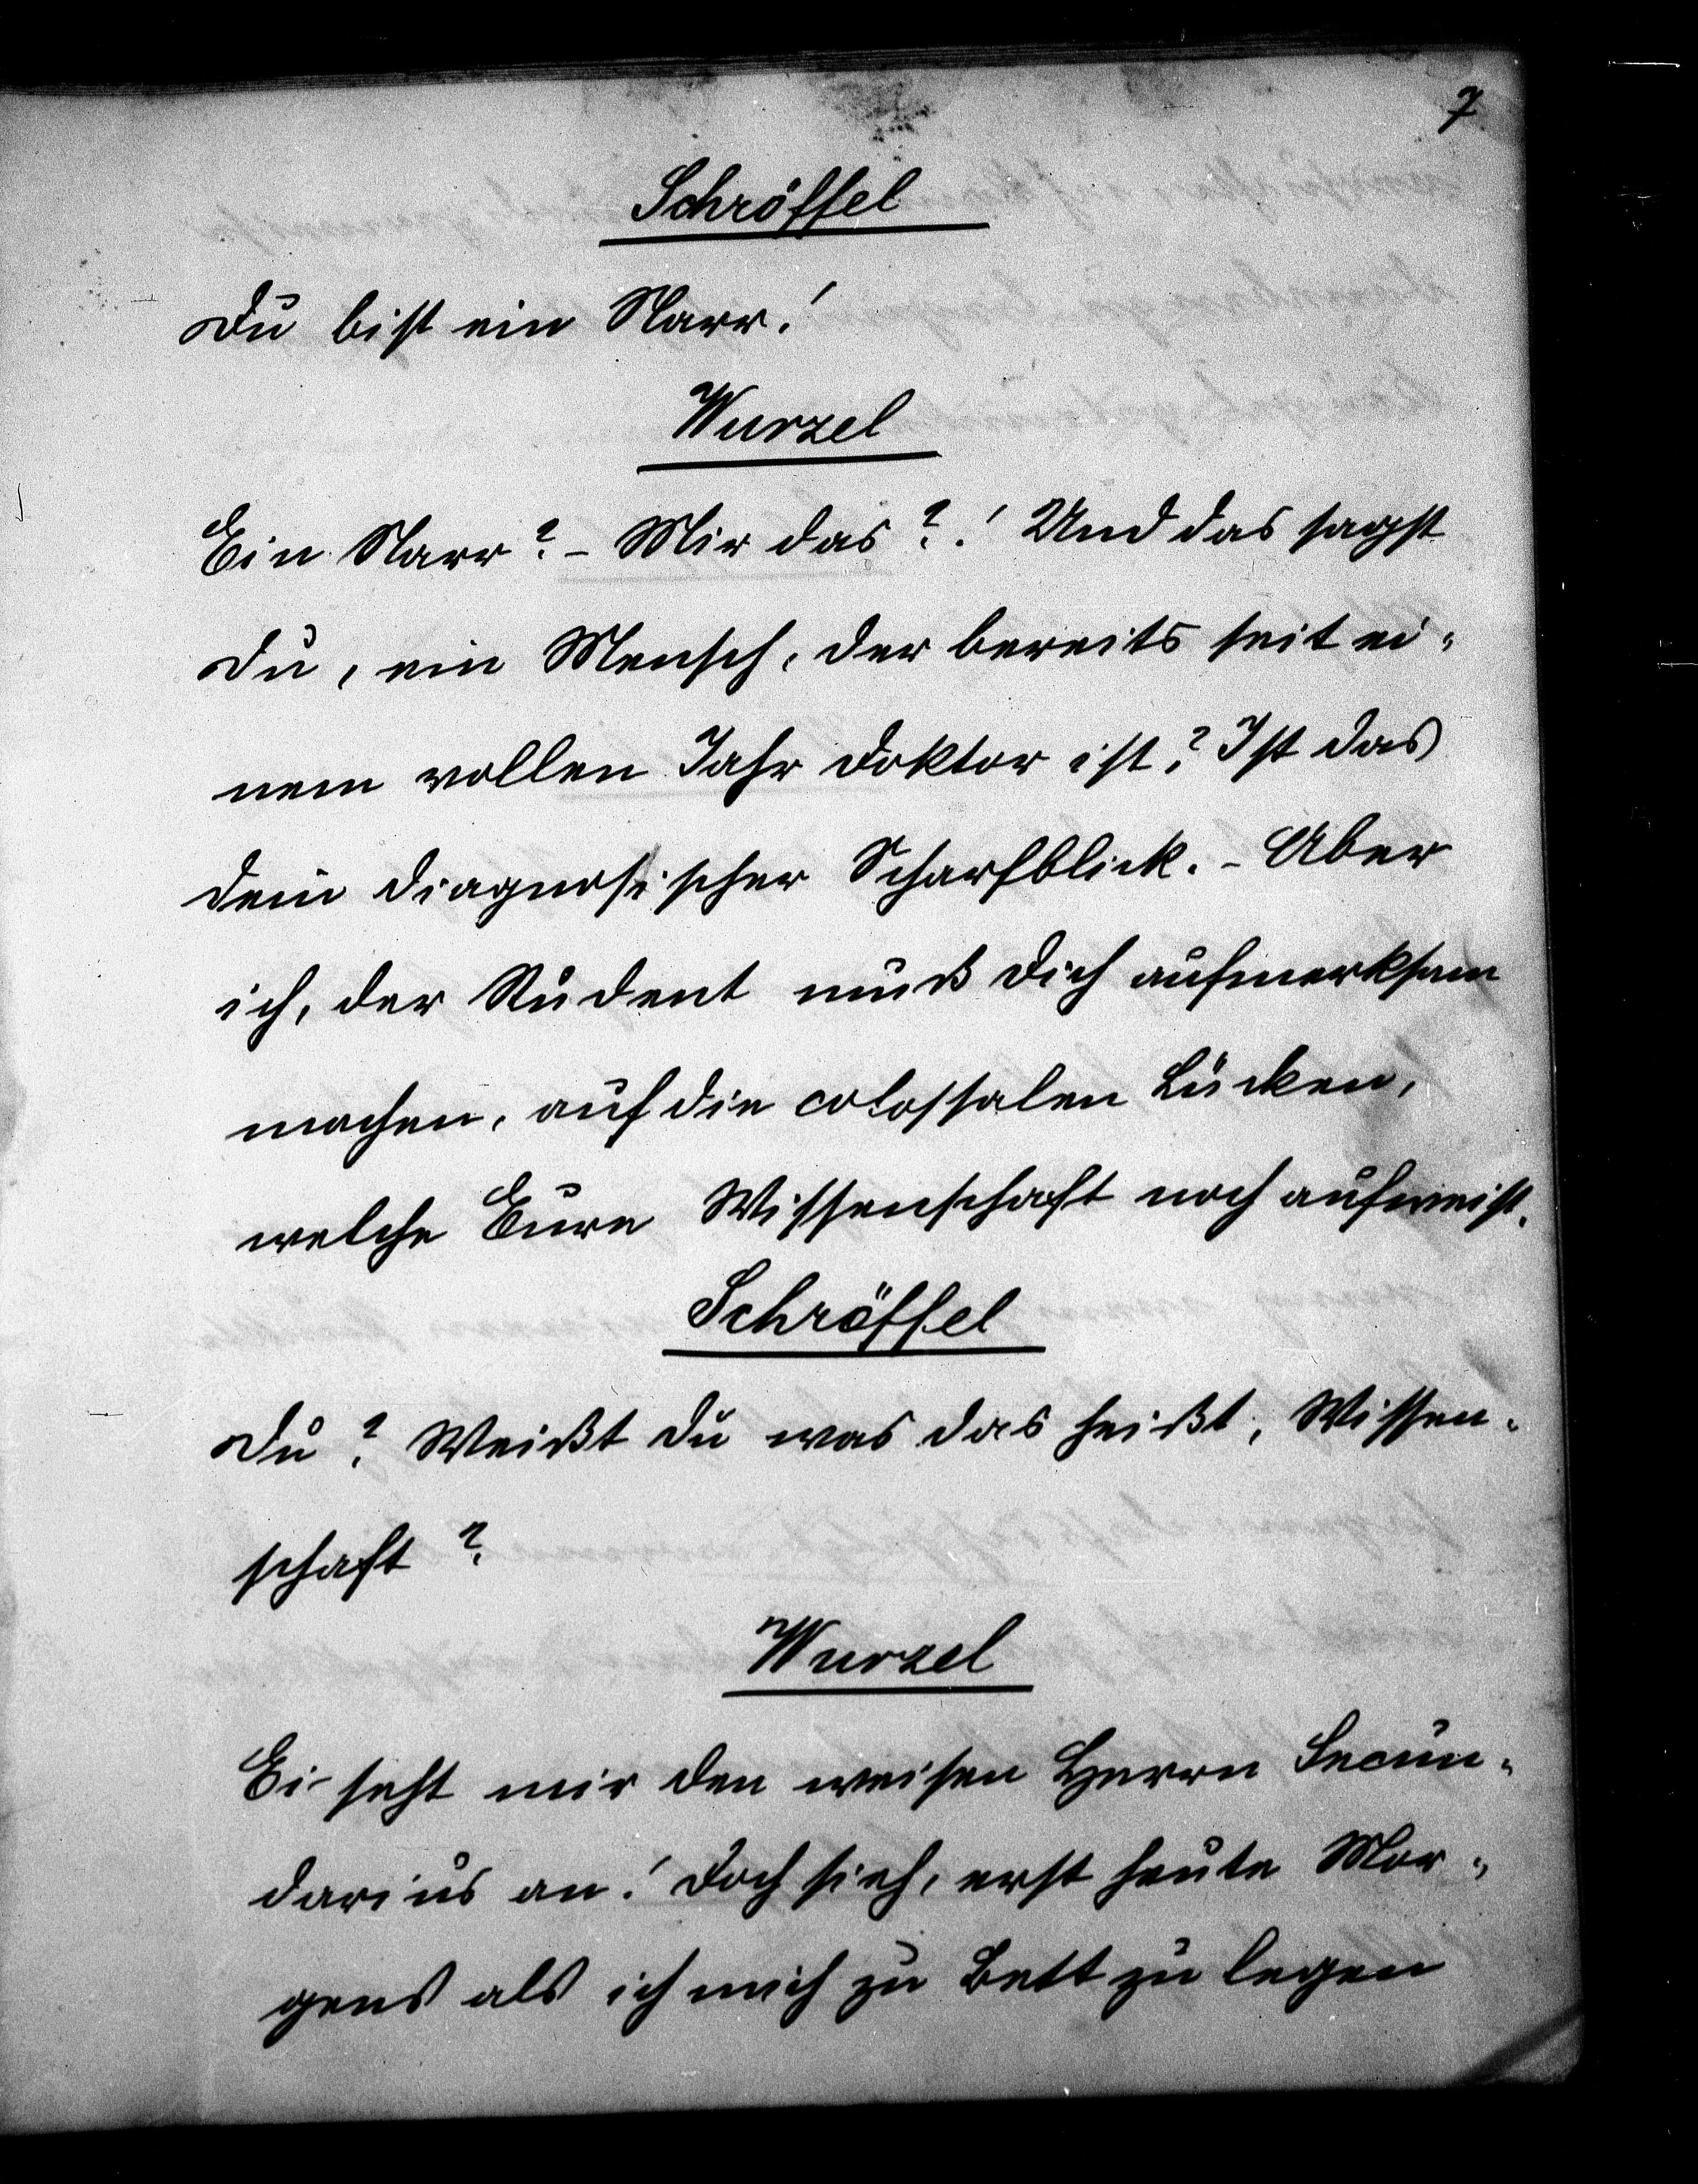 7
Schröffel
Du bist ein Narr!
Wurzel
Ein Narr? – Mir das?! Und das sagst
Du, ein Mensch, der bereits seit ei-
nem vollen Jahr Doktor ist? Ist das
dein diagnosischer Scharfblick. – Aber
ich, der Student muß Dich aufmerksam
machen, auf die colossalen Lücken,
welche Eure Wissenschaft noch aufweist.
Schröffel
Du? Weißt Du was das heißt, Wissen-
schaft?
Wurzel
Ei seht mir den weisen Herrn Secun-
darius an! Doch sieh, erst heute Mor-
gens als ich mich zu Bett zu legen